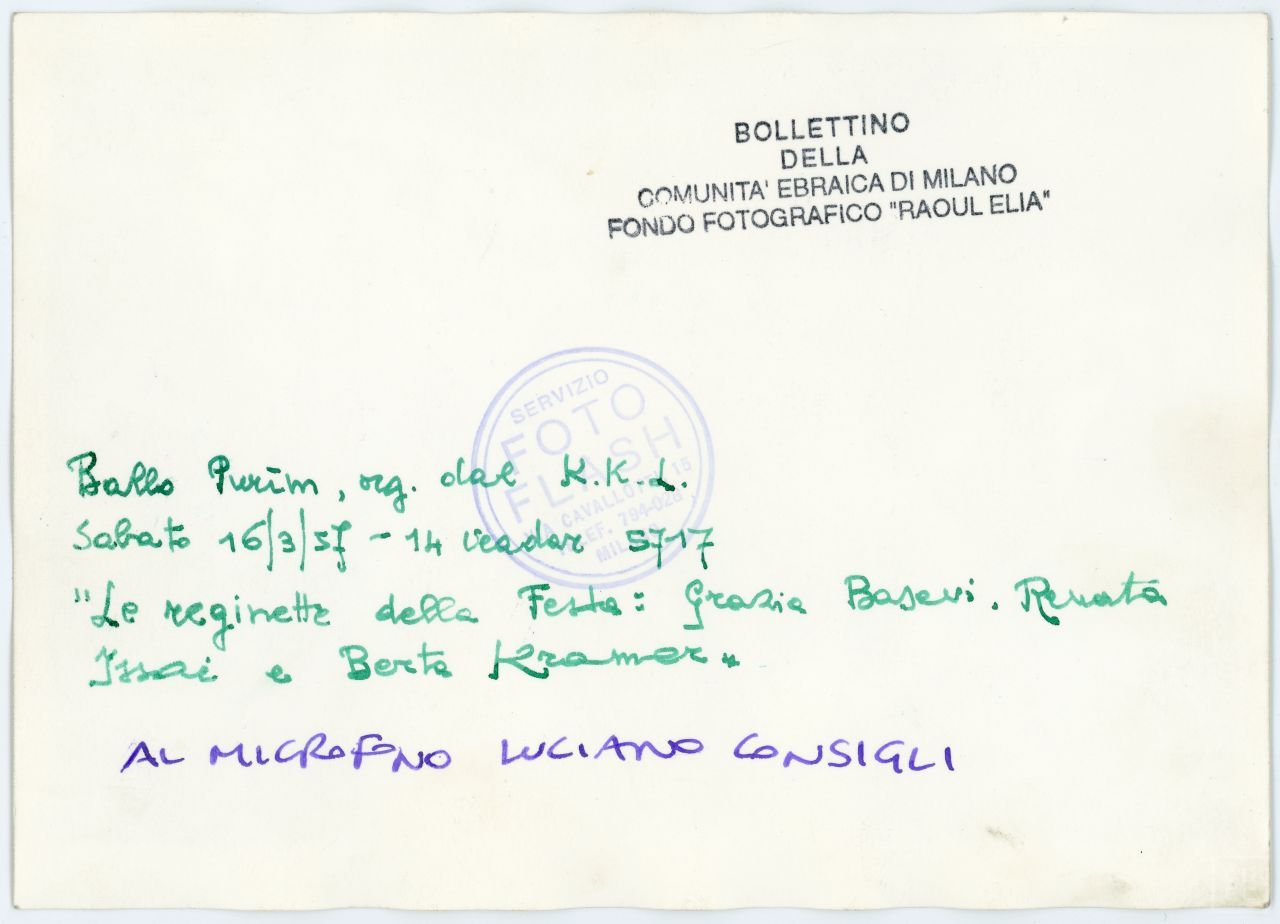 BOLLETTINO
DELLA
COMUNITA' EBRAICA DI MILANO
FONDO FOTOGRAFICO "RAOUL ELIA"
SERVIZIO
FOTO
FLASH
VIA CAVALLOTTI 15
TELEF. 794-028
MILANO
Ballo Purim, org. dal K.K.L.
Sabato 16/3/57 - 14 veadar 5717
"Le reginette della Festa: Grazia Basevi, Renata
Issai e Berta Kramer"
AL MICROFONO LUCIANO CONSIGLI